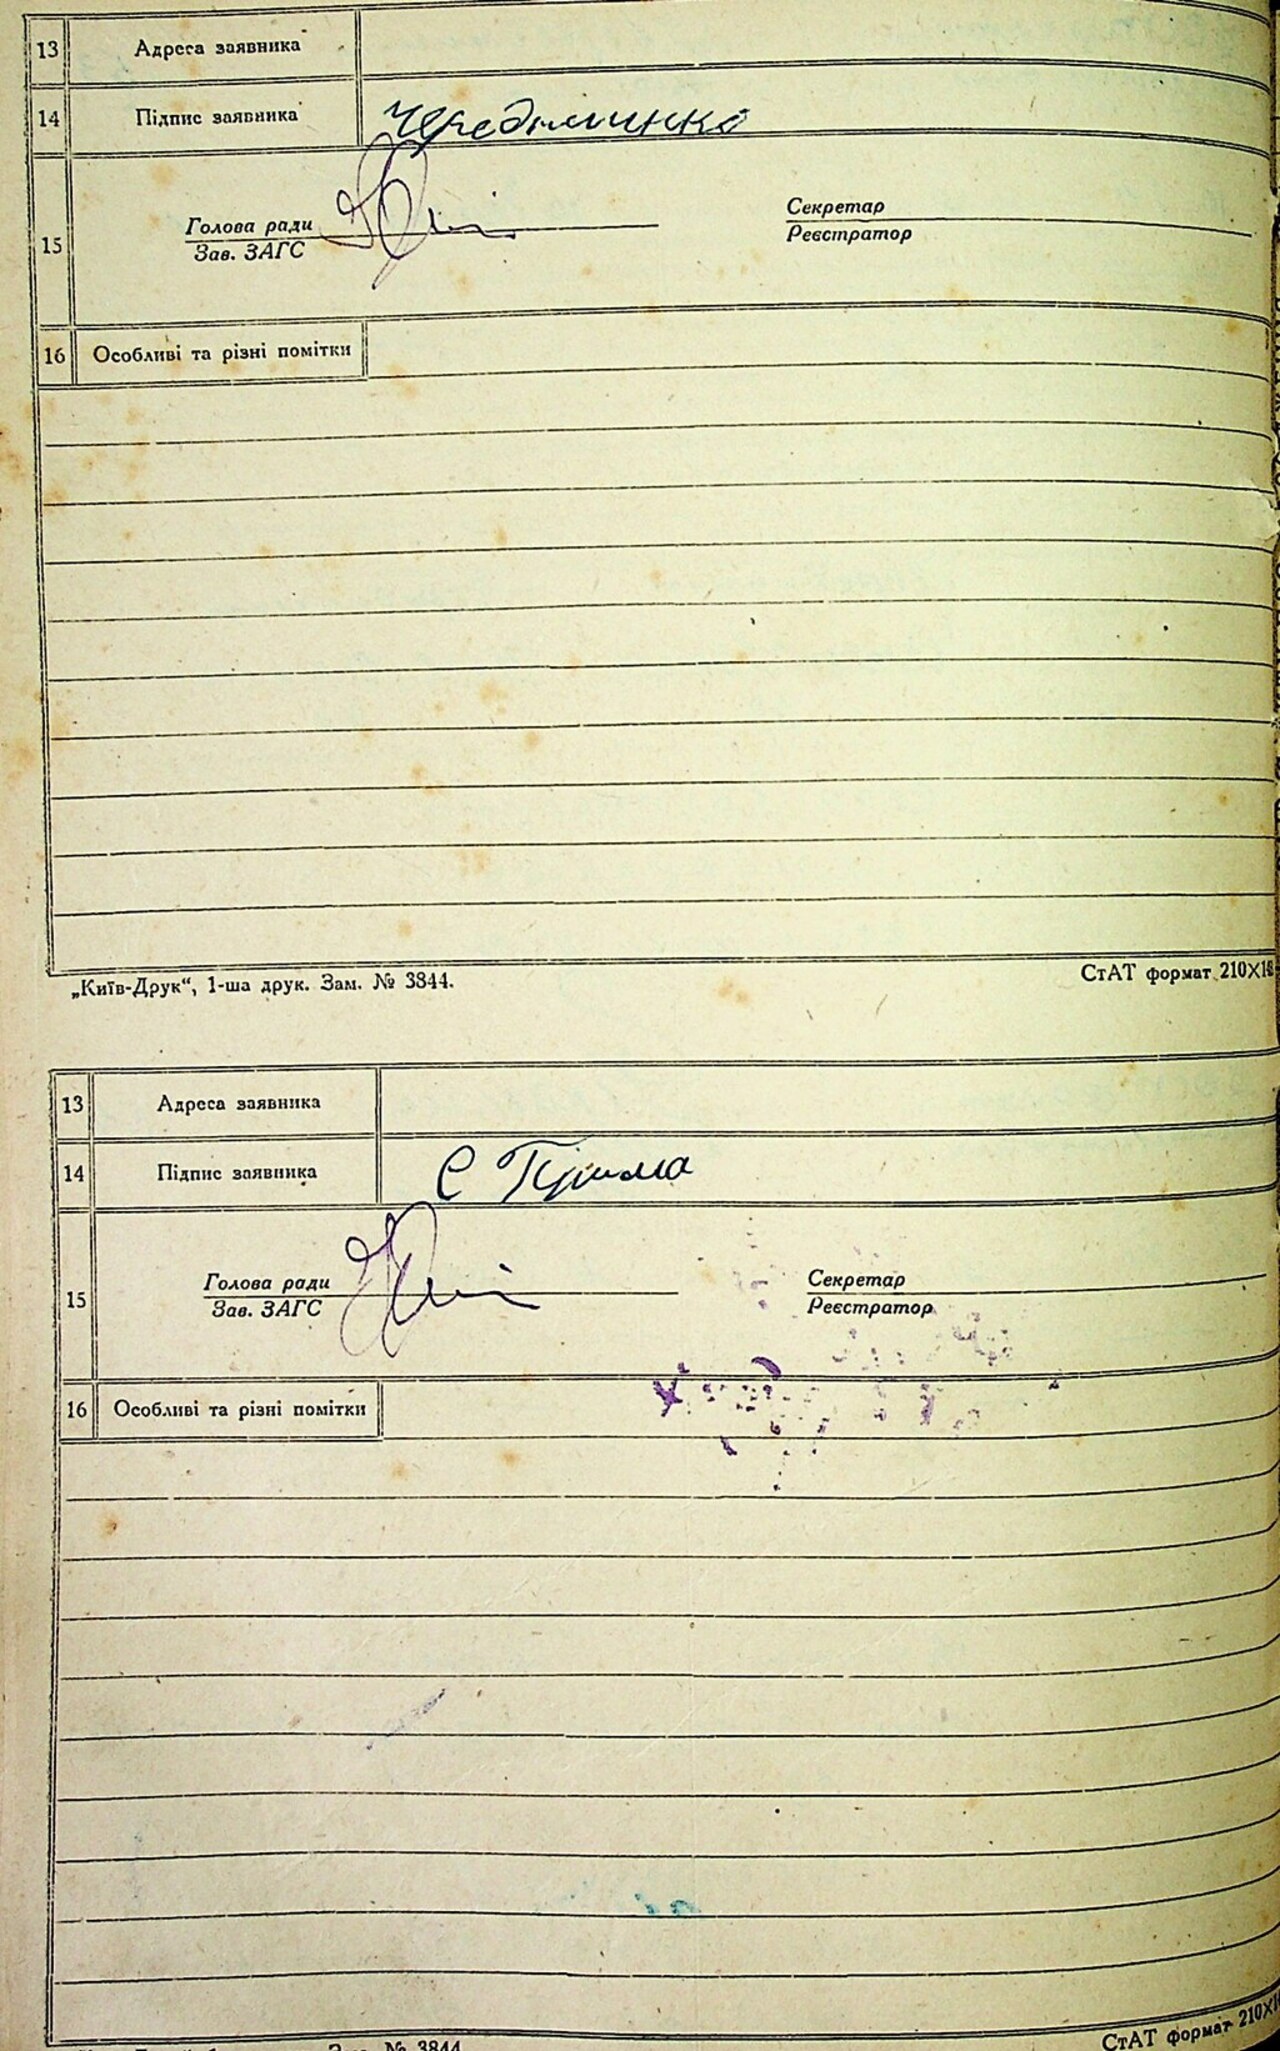 13 Адреса заявника
14 Підпис заявника
15 Голова ради
Зав. ЗАГС
Секретар
Реєстратор
16 Особливі та різні помітки
„Київ-Друк“, 1-ша друк. Зам. № 3844.
СтАТ формат 210×14
13 Адреса заявника
14 Підпис заявника С
15 Голова ради
Зав. ЗАГС
Секретар
Реєстратор
16 Особливі та різні помітки
Зам. № 3844
СтАТ формат 210×14